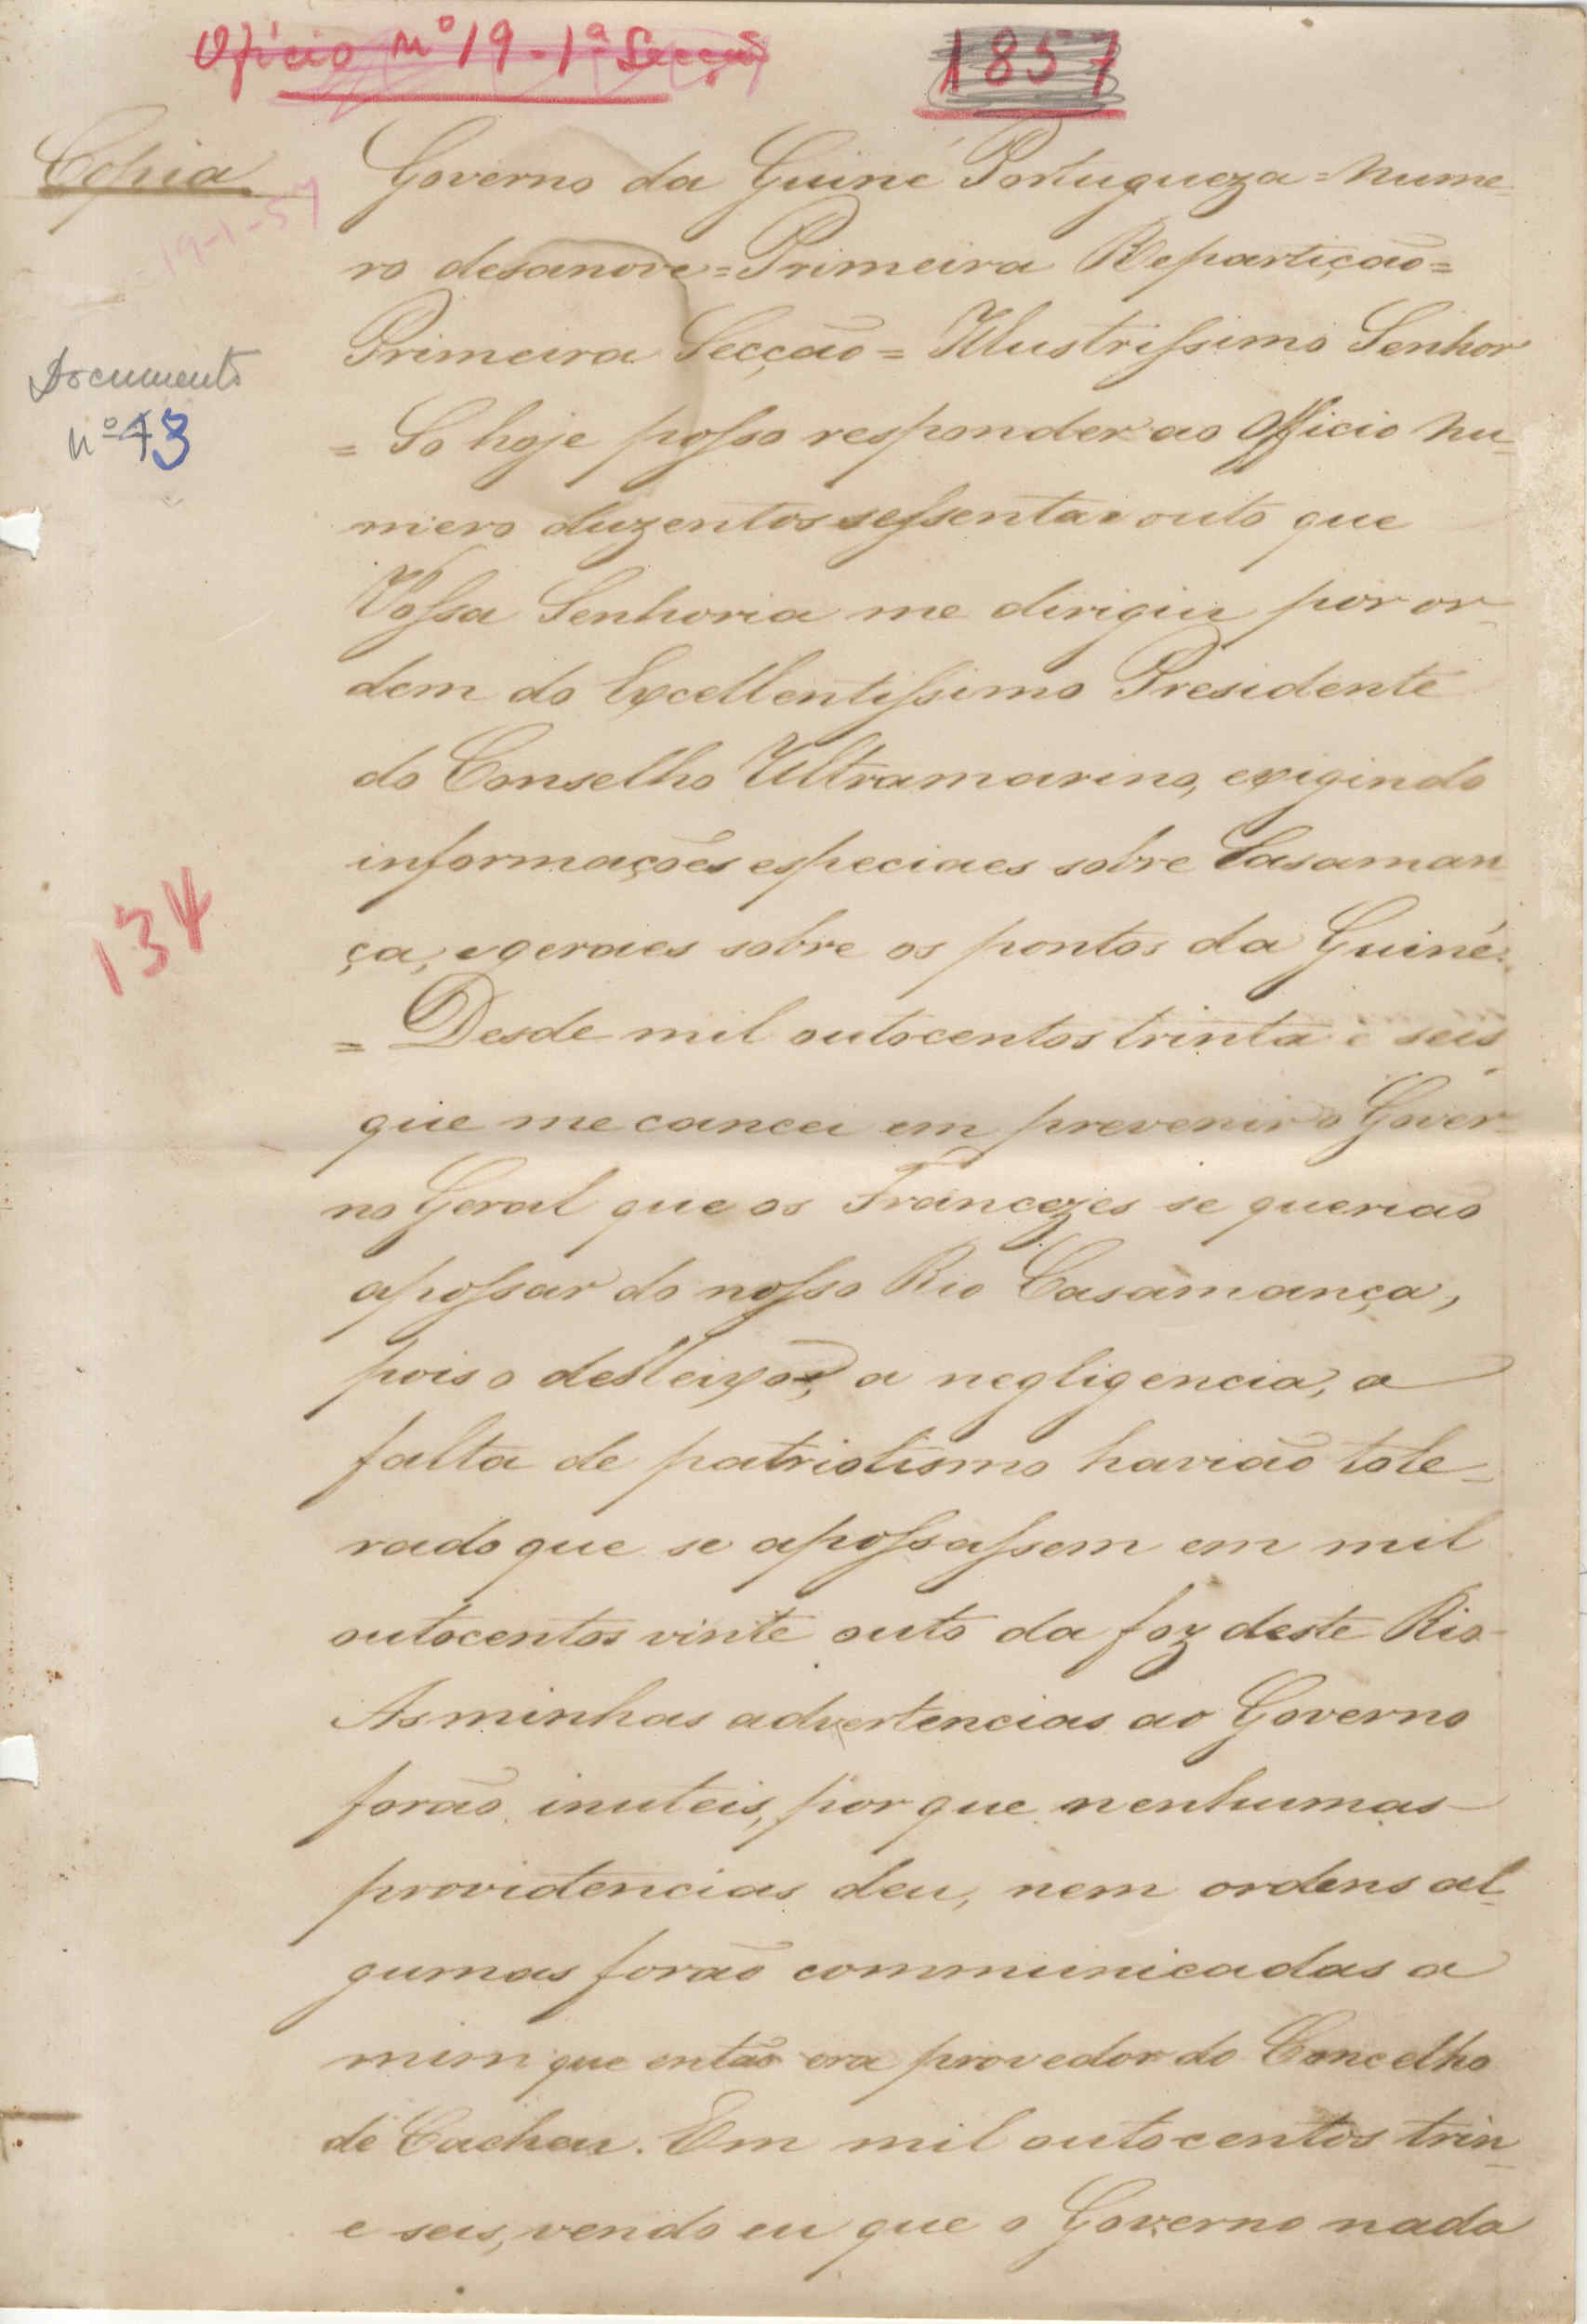 Oficio Nº 19 - 1ª Secção
1857
Copia
19-1-57
Documento
nº 13
134
Governo da Guiné Portugueza = Nume-
ro desanove = Primeira Repartição =
Primeira Secção = Illustrissimo Senhor
= So hoje posso responder ao Officio nu-
mero duzentos sessenta e outo que
Vossa Senhoria me dirigiu por or-
dem do Excellentissimo Presidente
do Conselho Ultramarino, exigindo
informações especiaes sobre Casaman
ça, e geraes sobre os pontos da Guiné.
= Desde mil outocentos trinta e seis
que me cancei em prevenir o Gover-
no Geral que os Francezes se querião
apossar do nosso Rio Casamança,
pois o desleixo, a negligencia, a
falta de patriotismo havião tole-
rado que se apossassem em mil
outocentos vinte outo da foz deste Rio
As minhas advertencias ao Governo
forão inuteis, por que nenhumas
providencias deu, nem ordens al-
gumas forão communicadas a
mim que então era provedor do Concelho
de Cacheu. Em mil outocentos trin-
e seis, vendo eu que o Governo nada